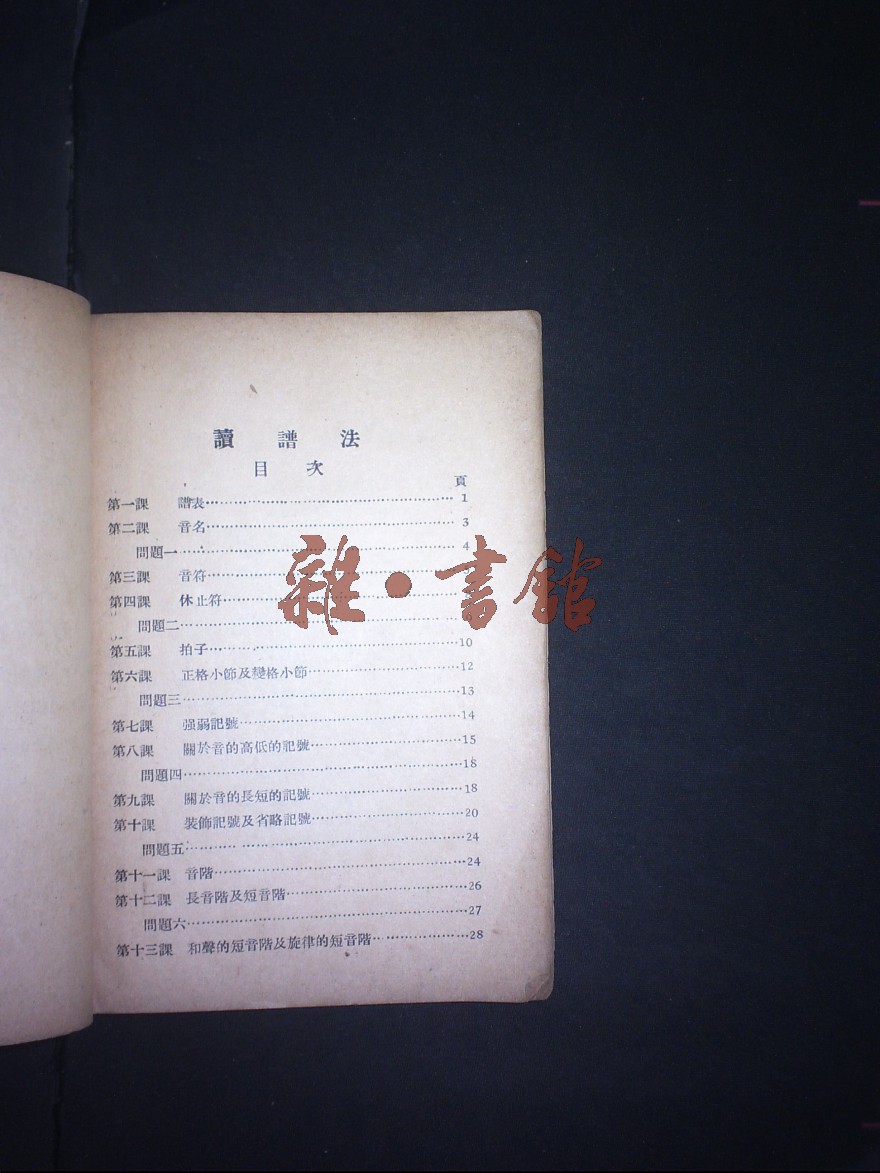 讀譜法
目次
頁
第一課 譜表……1
第二課 音名……3
問題一……4
第三課 音符……
第四課 休止符……
問題二……
第五課 拍子……10
第六課 正格小節及變格小節……12
問題三……13
第七課 强弱記號……14
第八課 關於音的高低的記號……15
問題四……18
第九課 關於音的長短的記號……18
第十課 裝飾記號及省略記號……20
問題五……24
第十一課 音階……24
第十二課 長音階及短音階……26
問題六……27
第十三課 和聲的短音階及旋律的短音階……28
雜·書館